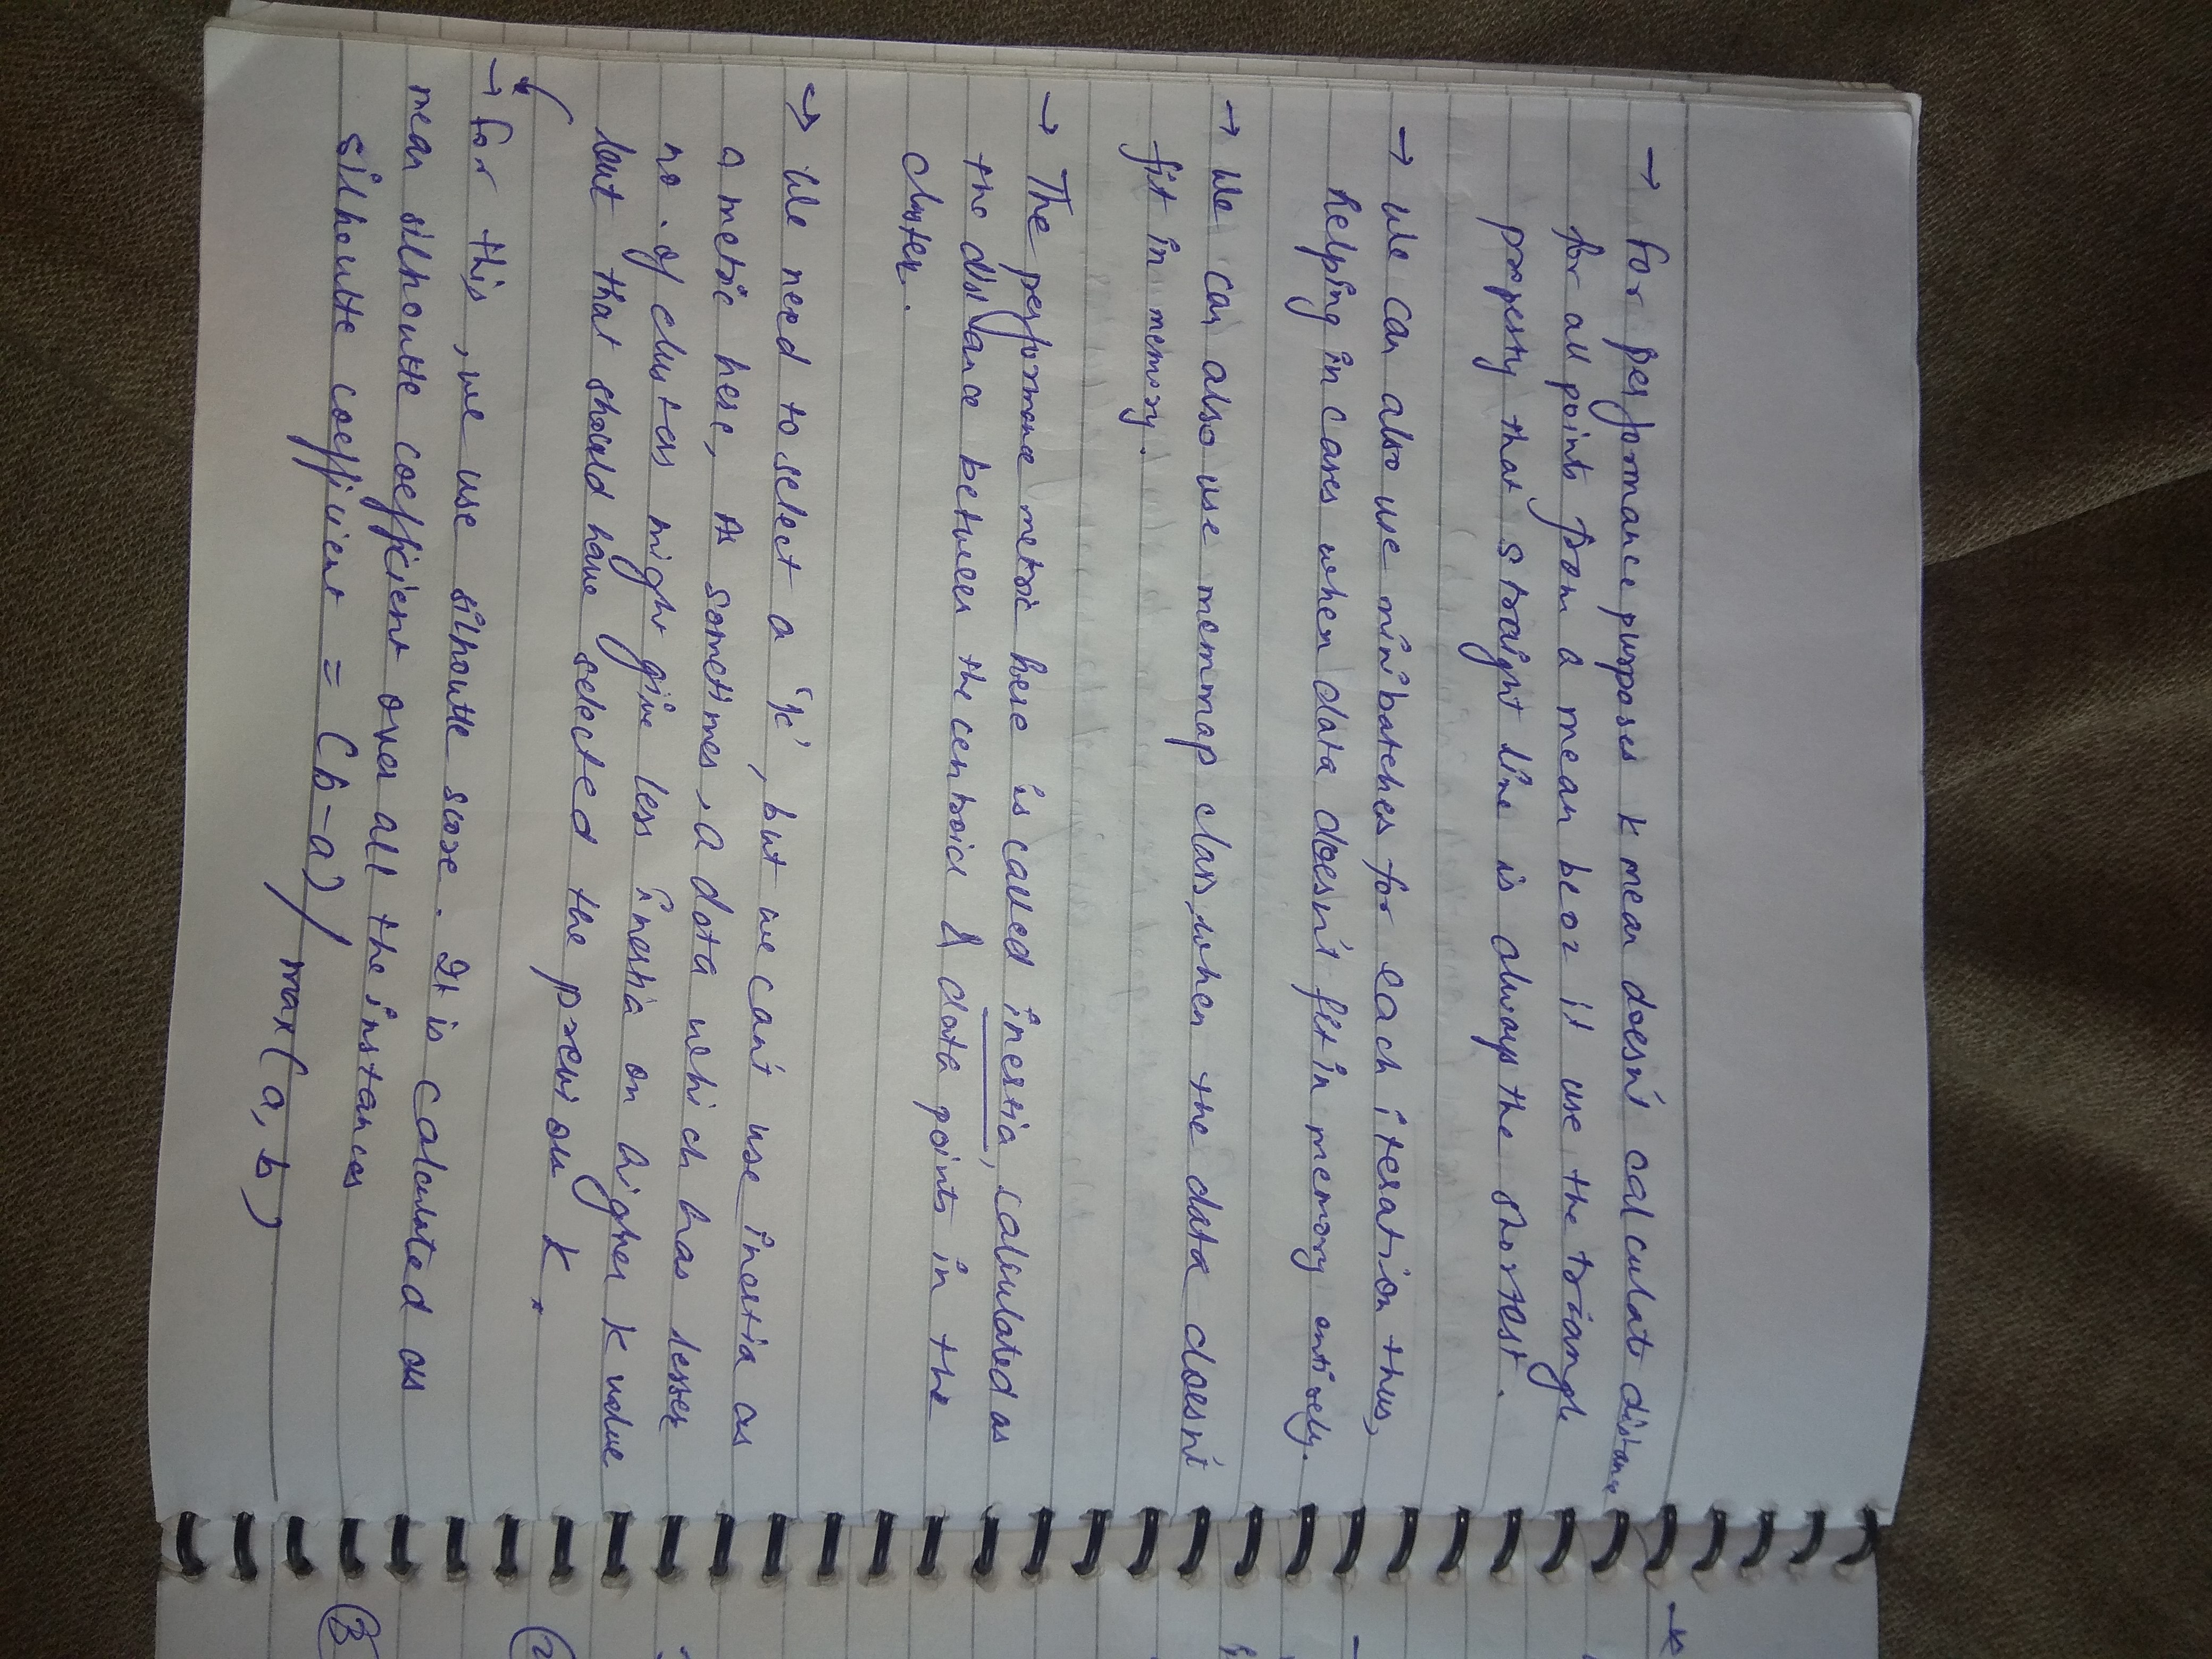 → For performance purposes k mean doesn't calculate distance
for all points from a mean bcoz it use the triangle
property that straight line is always the shortest.
→ We can also use minibatches for each iteration thus,
helping in cases when data doesn't fit in memory entirely.
→ We can also use memmap class, when the data doesn't
fit in memory.
→ The performance metric here is called inertia, calculated as
the distance between the centroid & data points in the
cluster.
→ We need to select a 'k', but we can't use inertia as
a metric here, As sometimes, a data which has lesser
no. of clusters might give less inertia on higher k value
but that should have selected the previous k.
→ for this, we use silhoutte score. It is calculated as
mean silhoutte coefficient over all the instances
silhoutte coefficient = (b-a) / max(a, b)
②
③